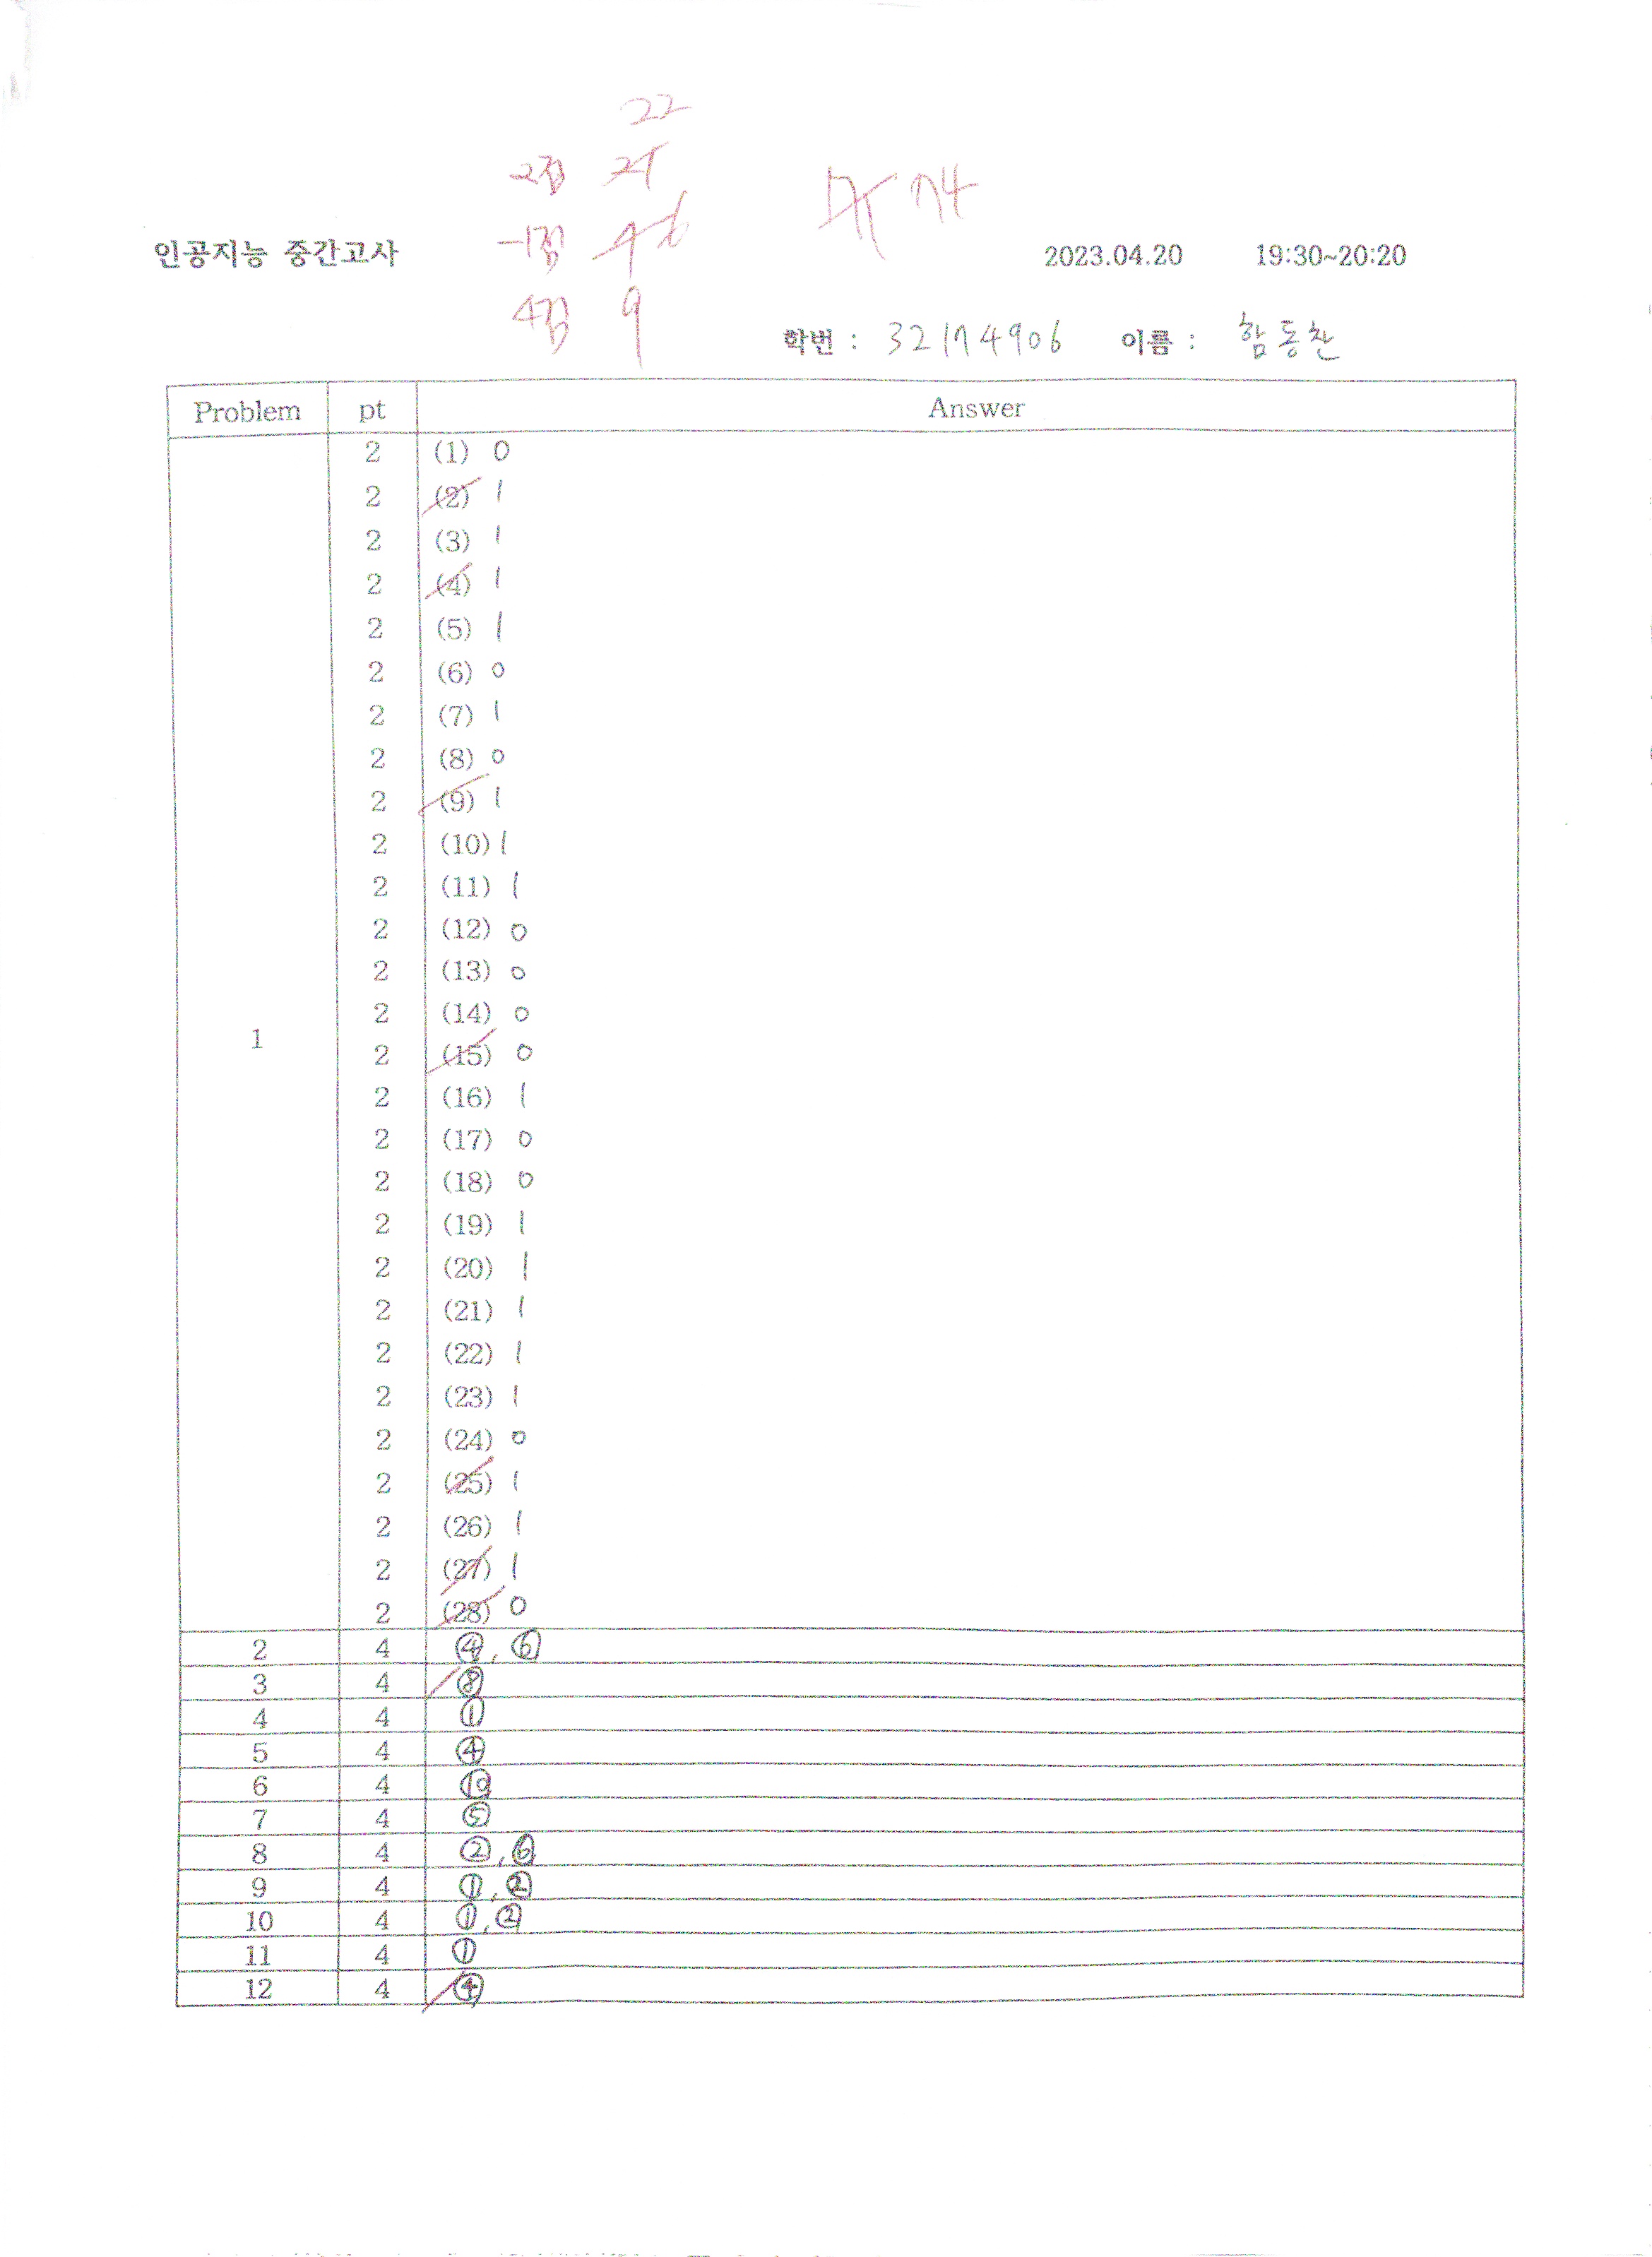 22
2점 21
-1점 4 6
4점 9
74
인공지능 중간고사 2023.04.20 19:30~20:20
학번 : 32174906 이름 : 함동찬
Problem pt Answer
1
2 (1) 0
2 (2) 1
2 (3) 1
2 (4) 1
2 (5) 1
2 (6) 0
2 (7) 1
2 (8) 0
2 (9) 1
2 (10) 1
2 (11) 1
2 (12) 0
2 (13) 0
2 (14) 0
2 (15) 0
2 (16) 1
2 (17) 0
2 (18) 0
2 (19) 1
2 (20) 1
2 (21) 1
2 (22) 1
2 (23) 1
2 (24) 0
2 (25) 1
2 (26) 1
2 (27) 1
2 (28) 0
2 4 ④, ⑥
3 4 ⑧
4 4 ①
5 4 ④
6 4 ⑩
7 4 ⑤
8 4 ②, ⑥
9 4 ①, ②
10 4 ①, ②
11 4 ①
12 4 ④